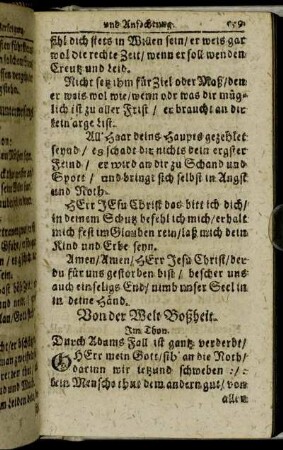 und Anfechtung. 559.
fühl dich stets in Willen sein/ er weis gar
wol die rechte Zeit/ wenn er soll wenden
Creutz und Leid.
Nicht setz ihm für Ziel oder Maß/ den
er weis wol wie/ wenn odr was dir müg-
lich ist zu aller Frist/ er braucht an dir
kein arge List.
All Haar deins Haupts gezehlet
seynd/ es schadt dir nichts dein ergster
Feind/ er wird an dir zu Schand und
Spott/ und bringt sich selbst in Angst
und Noth.
HErr JEsu Christ das bitt ich dich/
in deinem Schutz befehl ich mich/ erhalt
mich fest im Glauben rein/ laß mich dein
Kind und Erbe seyn.
Amen/ Amen/ HErr Jesu Christ/ der
du für uns gestorben bist/ bescher uns
auch ein seligs End/ nimb unser Seel in
in deine Händ.
Von der Welt Boßheit.
Im Thon.
Durch Adams Fall ist gantz verderbt/
O HErr mein Gott/ sih' an die Noth/
darinn wir ietzund schweben :/:
kein Mensch thut dem andern gut/ von
allen